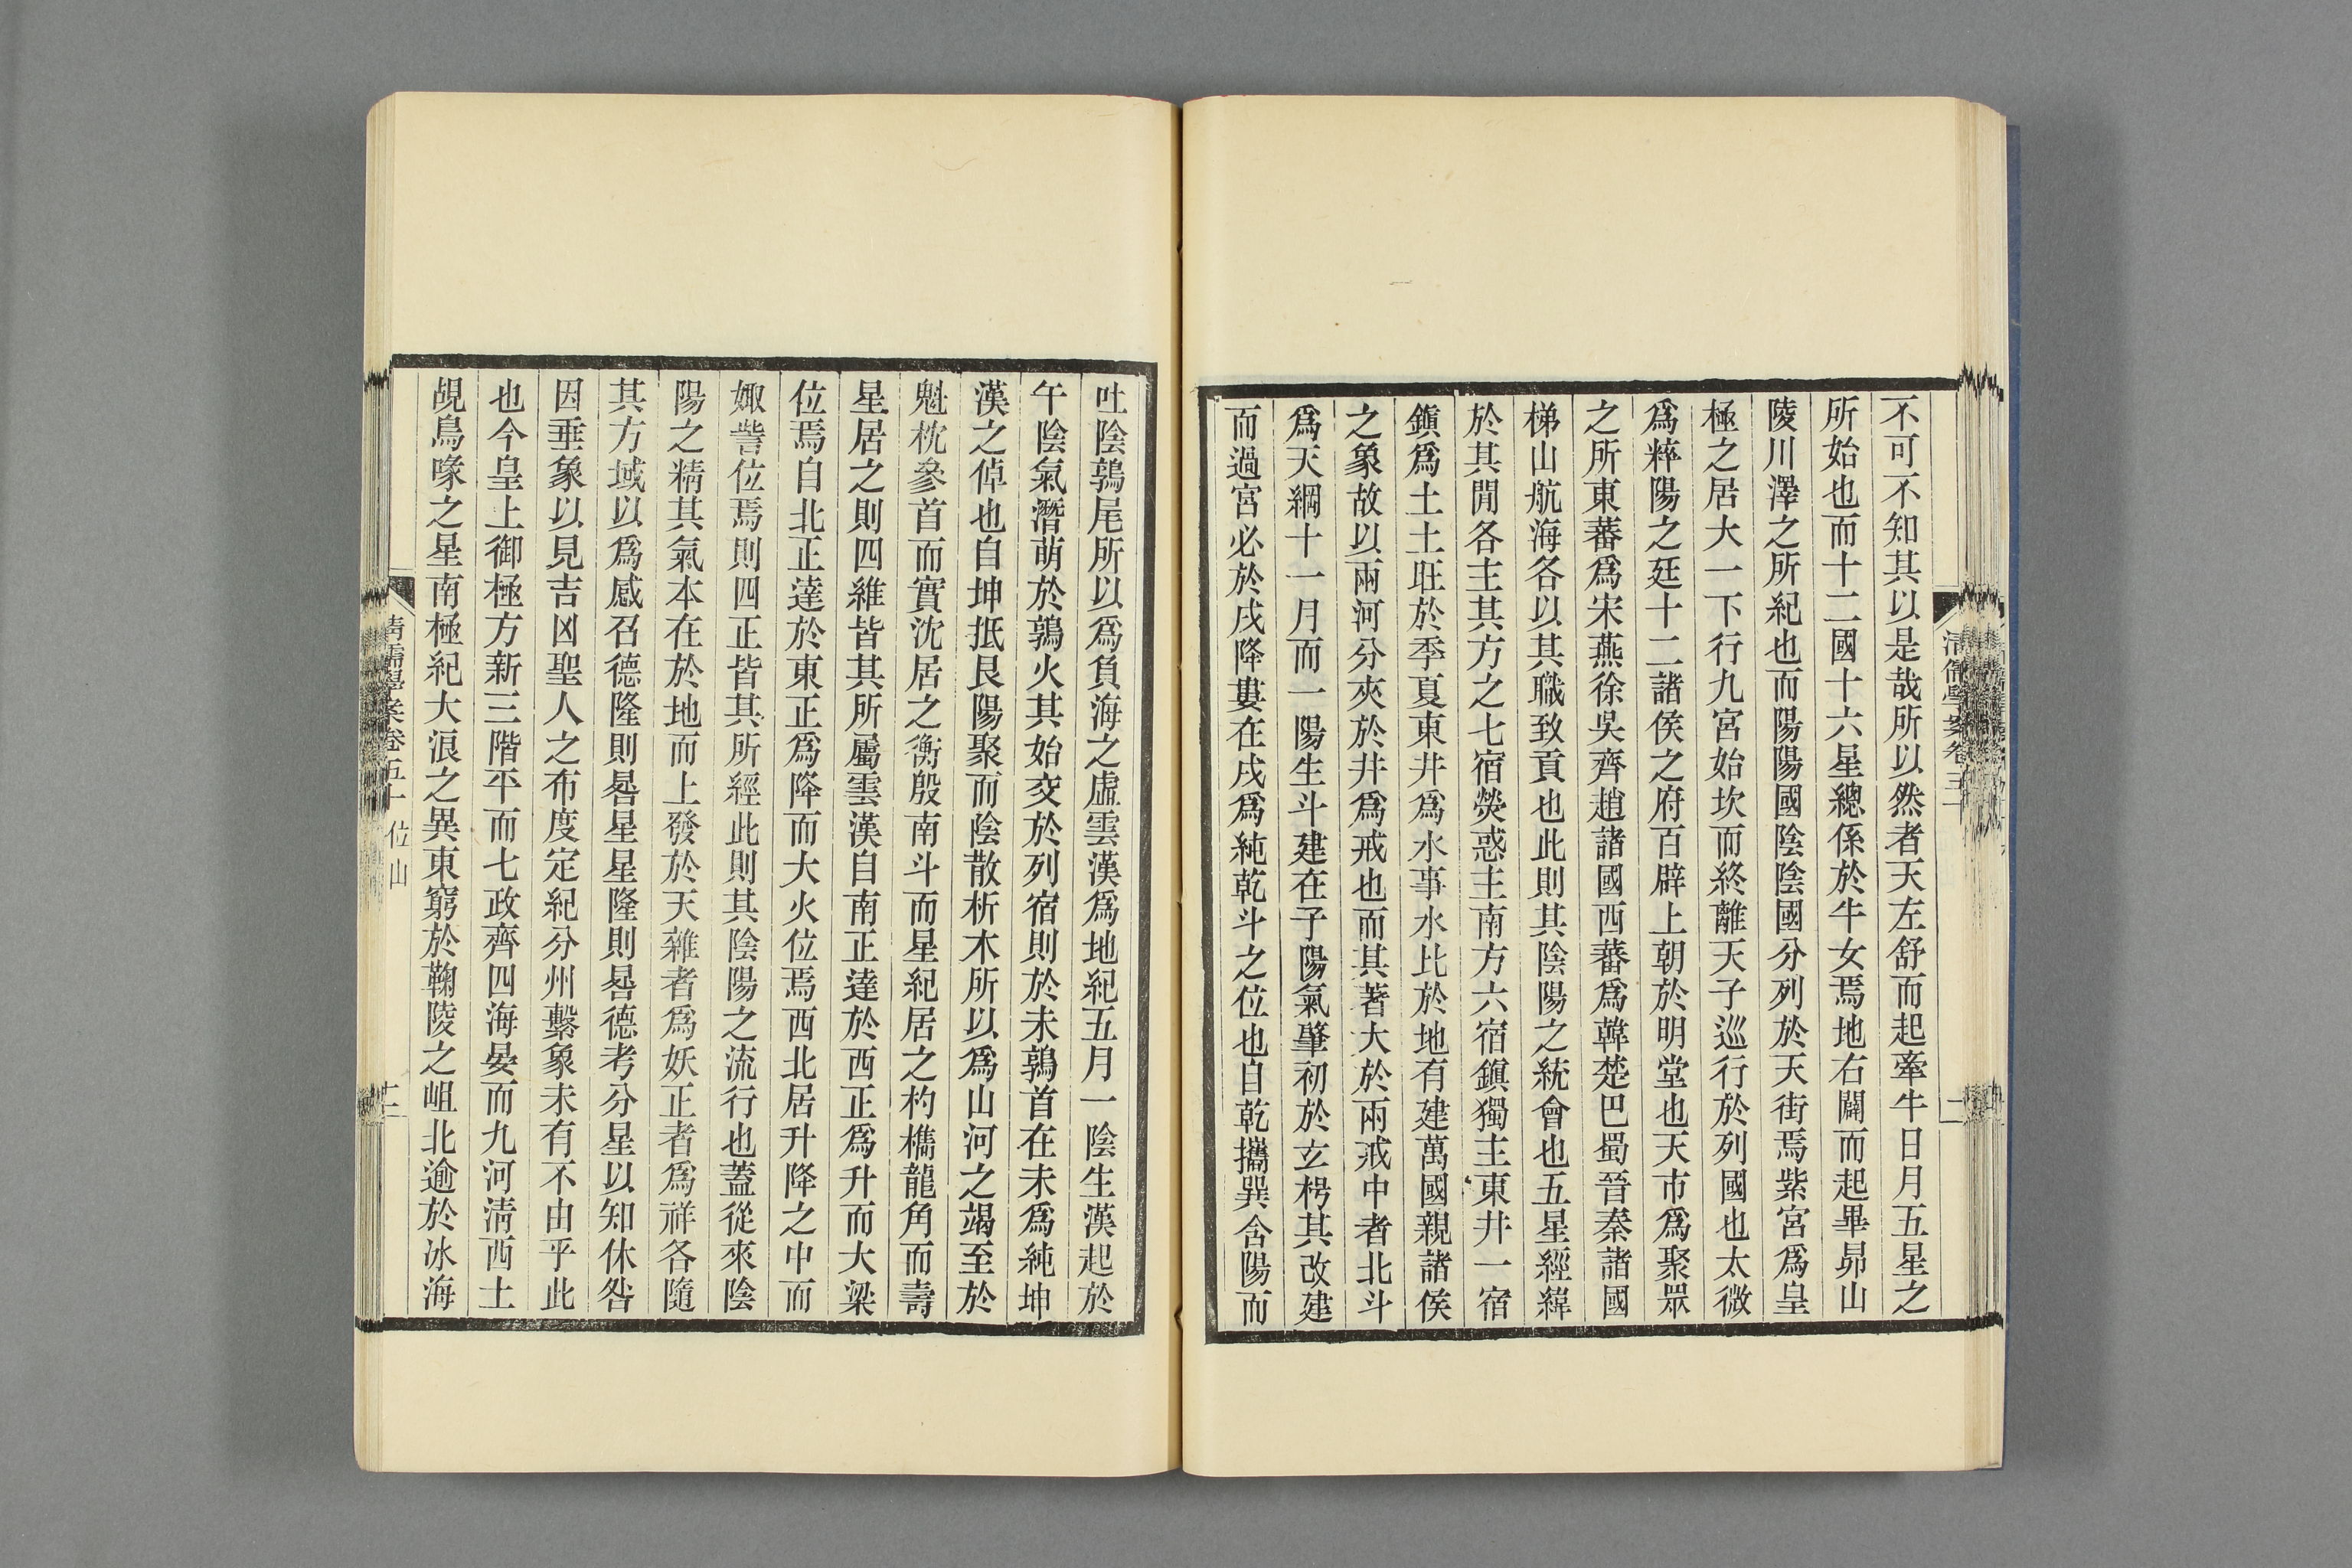 不可不知其以是哉所以然者天左舒而起牽牛日月五星之
所始也而十二國十六星總係於牛女焉地右闢而起畢昴山
陵川澤之所紀也而陽陽國陰陰國分列於天街焉紫宮爲皇
極之居大一下行九宮始坎而終離天子巡行於列國也太微
爲粹陽之廷十二諸侯之府百辟上朝於明堂也天市爲聚眾
之所東蕃爲宋燕徐吳齊趙諸國西蕃爲韓楚巴蜀晉秦諸國
梯山航海各以其職致貢也此則其陰陽之統會也五星經緯
於其閒各主其方之七宿熒惑主南方六宿鎭獨主東井一宿
鎭爲土土旺於季夏東井爲水事水比於地有建萬國親諸侯
之象故以兩河分夾於井爲戒也而其著大於兩戒中者北斗
爲天綱十一月而一陽生斗建在子陽氣肇初於玄枵其改建
而過宮必於戌降婁在戌爲純乾斗之位也自乾攜巽含陽而
吐陰鶉尾所以爲負海之虛雲漢爲地紀五月一陰生漢起於
午陰氣潛萌於鶉火其始交於列宿則於未鶉首在未爲純坤
漢之倬也自坤抵艮陽聚而陰散析木所以爲山河之竭至於
魁枕參首而實沈居之衡殷南斗而星紀居之杓檇龍角而壽
星居之則四維皆其所屬雲漢自南正達於西正爲升而大梁
位焉自北正達於東正爲降而大火位焉西北居升降之中而
娵訾位焉則四正皆其所經此則其陰陽之流行也蓋從來陰
陽之精其氣本在於地而上發於天雜者爲妖正者爲祥各隨
其方域以爲感召德隆則晷星星隆則晷德考分星以知休咎
因垂象以見吉凶聖人之布度定紀分州繫象未有不由乎此
也今皇上御極方新三階平而七政齊四海晏而九河淸西土
覘鳥喙之星南極紀大浪之異東窮於鞠陵之岨北逾於冰海
清儒學案卷五十
位山